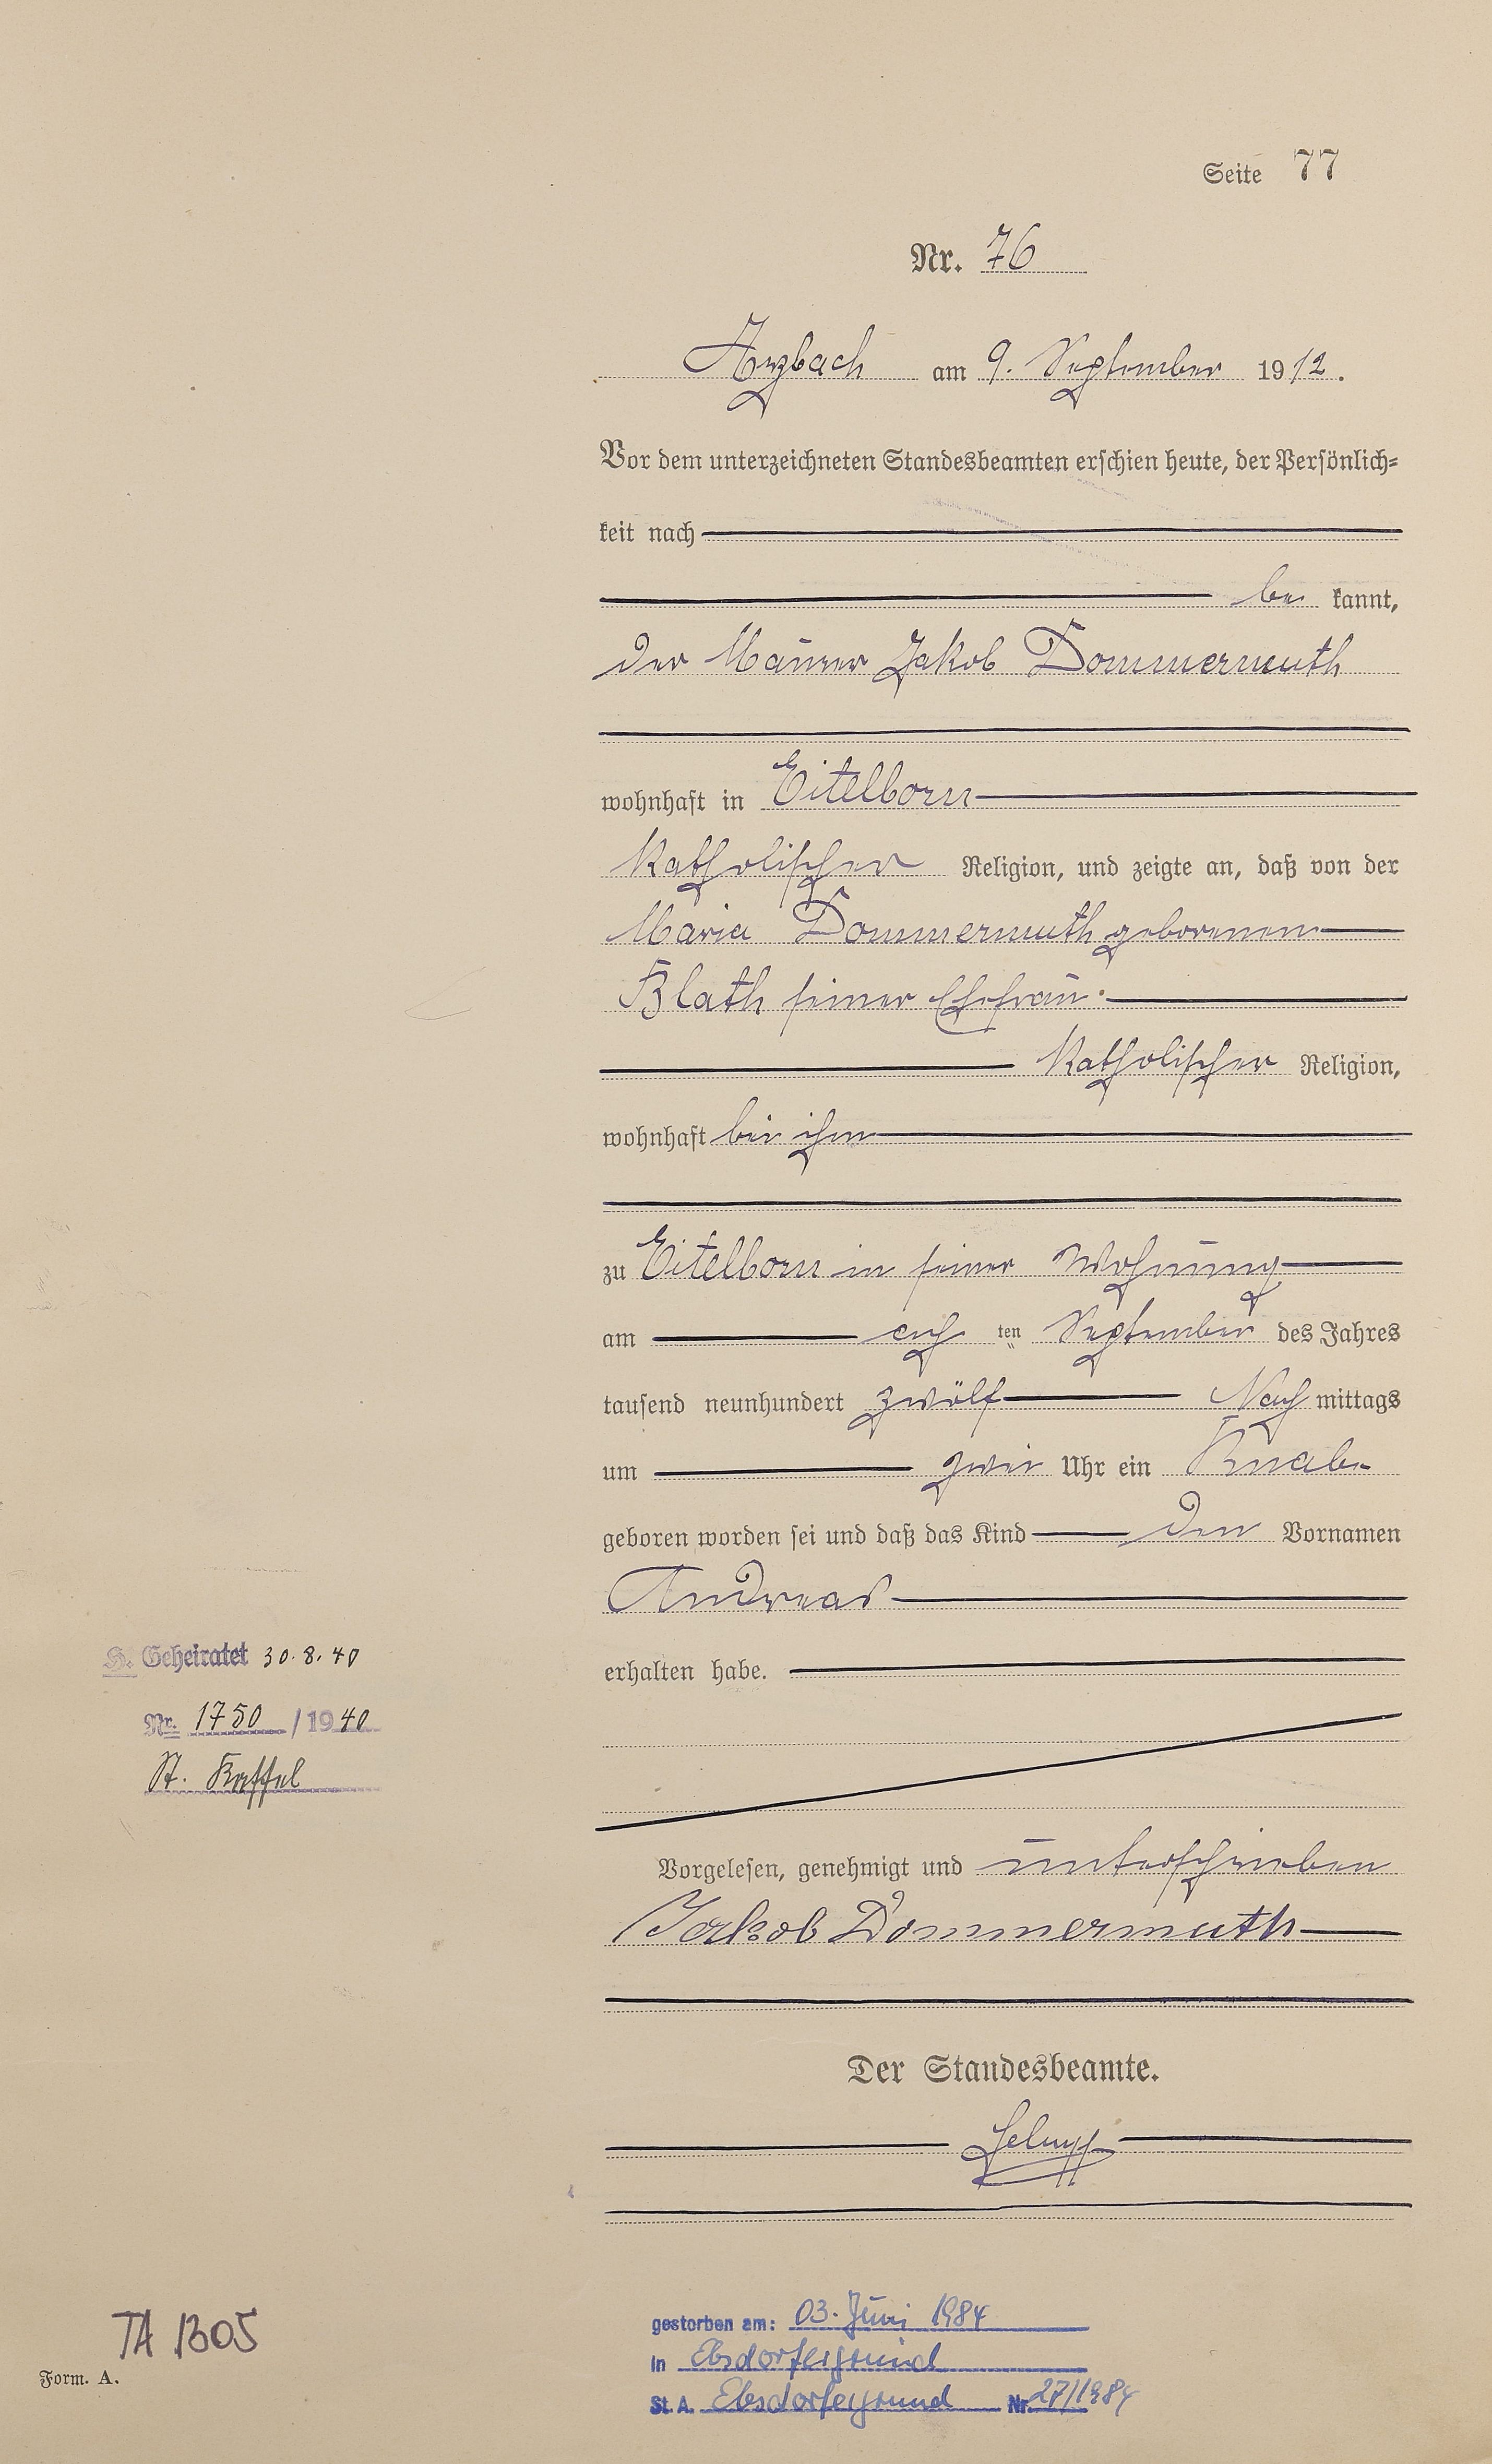 Seite 77
Nr. 76
Arzbach am 9. September 1912.
Vor dem unterzeichneten Standesbeamten erschien heute, der Persönlich=
keit nach
be kannt,
der Maurer Jakob Dommermuth
wohnhaft in Eitelborn
katholischer Religion, und zeigte an, daß von der
Maria Dommermuth geborenen
Blath seiner Ehefrau
katholischer Religion,
wohnhaft bei ihm
zu Eitelborn in seiner Wohnung
am acht ten September des Jahres
tausend neunhundert zwölf Nach mittags
um zwei Uhr ein Knabe
geboren worden sei und daß das Kind den Vornamen
Andreas
erhalten habe.
H. Geheiratet 30.8.40
Nr. 1750 / 1940
St. Kassel
Vorgelesen, genehmigt und unterschrieben
Jakob Dommermuth
Der Standesbeamte.
gestorben am: 03. Juni 1984
in Ebsdorfergrund
St. A. Ebsdorfergrund Nr. 27/1984
TA 1305
Form. A.